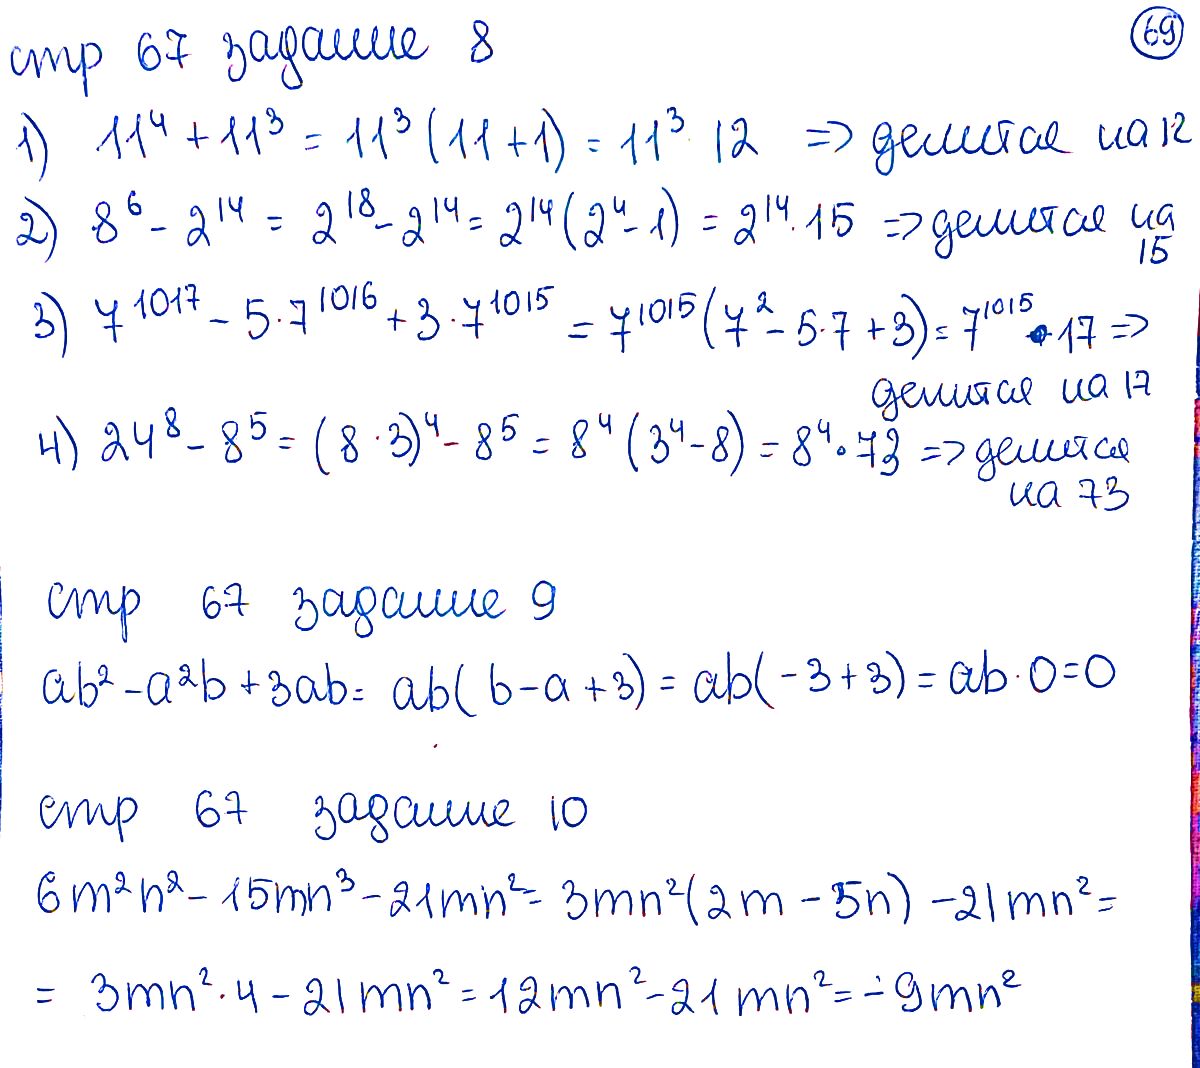 стр 67 задание 8
69
1) 11⁴ + 11³ = 11³ (11 + 1) = 11³ · 12 => делится на 12
2) 8⁶ - 2¹⁴ = 2¹⁸ - 2¹⁴ = 2¹⁴ (2⁴ - 1) = 2¹⁴ · 15 => делится на
15
3) 7¹⁰¹⁷ - 5 · 7¹⁰¹⁶ + 3 · 7¹⁰¹⁵ = 7¹⁰¹⁵ (7² - 5 · 7 + 3) = 7¹⁰¹⁵ · 17 =>
делится на 17
4) 24⁸ - 8⁵ = (8 · 3)⁴ - 8⁵ = 8⁴ (3⁴ - 8) = 8⁴ · 73 => делится
на 73
стр 67 задание 9
ab² - a²b + 3ab = ab( b - a + 3) = ab( - 3 + 3) = ab · 0 = 0
стр 67 задание 10
6m²n² - 15mn³ - 21mn² = 3mn² (2m - 5n) - 21mn² =
= 3mn² · 4 - 21mn² = 12mn² - 21mn² = - 9mn²